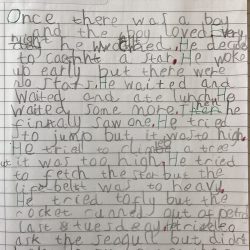 Once there was a boy
and the boy loved very
night he wached. He decide
to cacht a star. He woke
up early but there were
no stars. He waited and
waited and ate lunch. He
waited some more. Then he
finally saw one. He tried
to jump but it was to high.
He tried to climb a tree
but it was too high. He tried
to fetch the star but the
life belt was to heavy.
He tried to fly but the
rocket runned out of petr
last tuesday. He tried to
ask the seagull but didnt